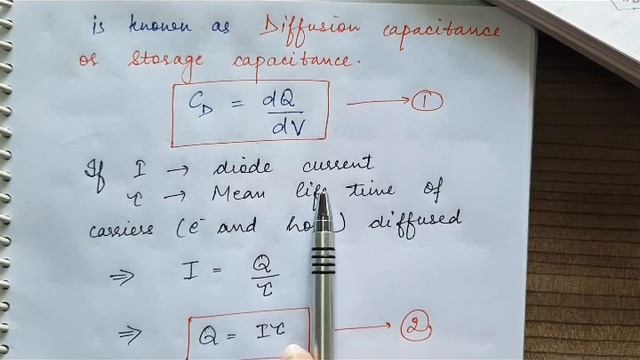 is known as Diffusion capacitance
or storage capacitance.
C_D = dQ/dV → ①
If I → diode current
τ → Mean life time of
carriers (e⁻ and ho) diffused
⇒ I = Q/τ
⇒ Q = Iτ → ②